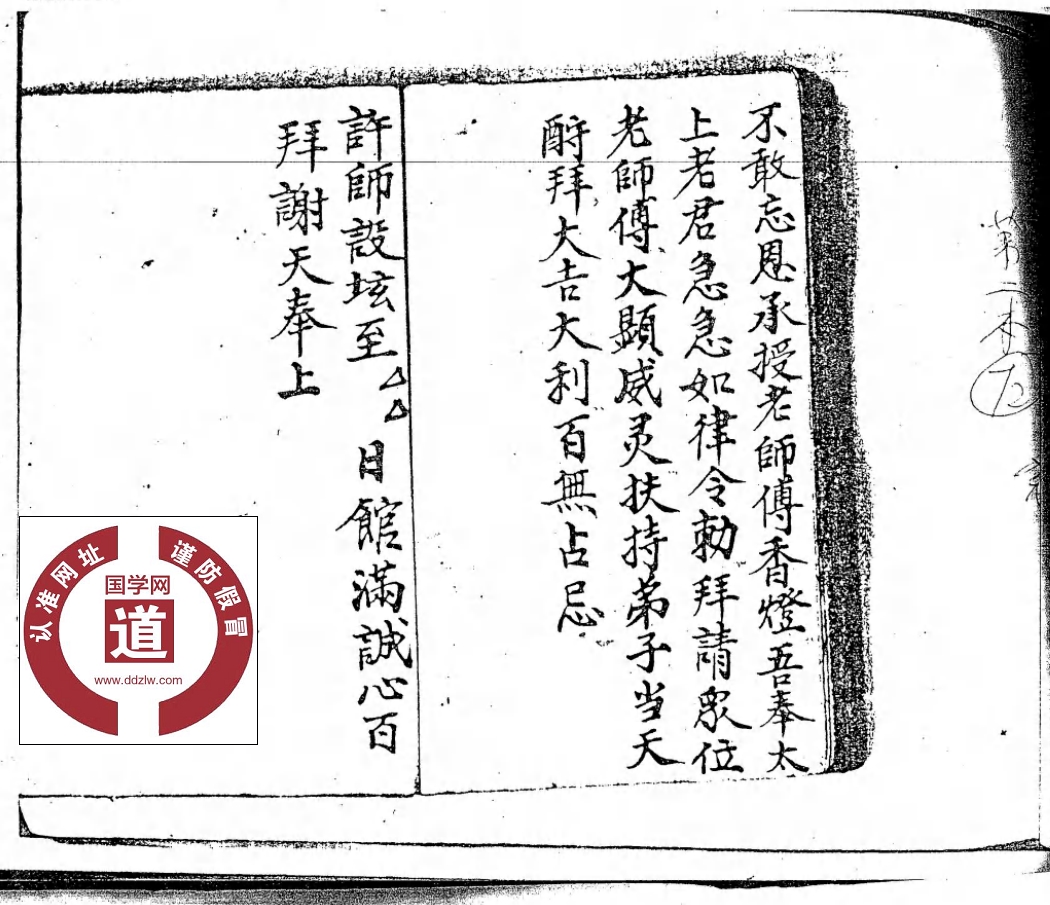 不敢忘恩承授老師傅香燈吾奉太
上老君急急如律令勅拜請眾位
老師傅大顯威灵扶持弟子当天
酧拜大吉大利百無占忌
許師設坛至△△日館滿誠心百
拜謝天奉上
第二本
认准网址 谨防假冒
国学网
道
www.ddzlw.com